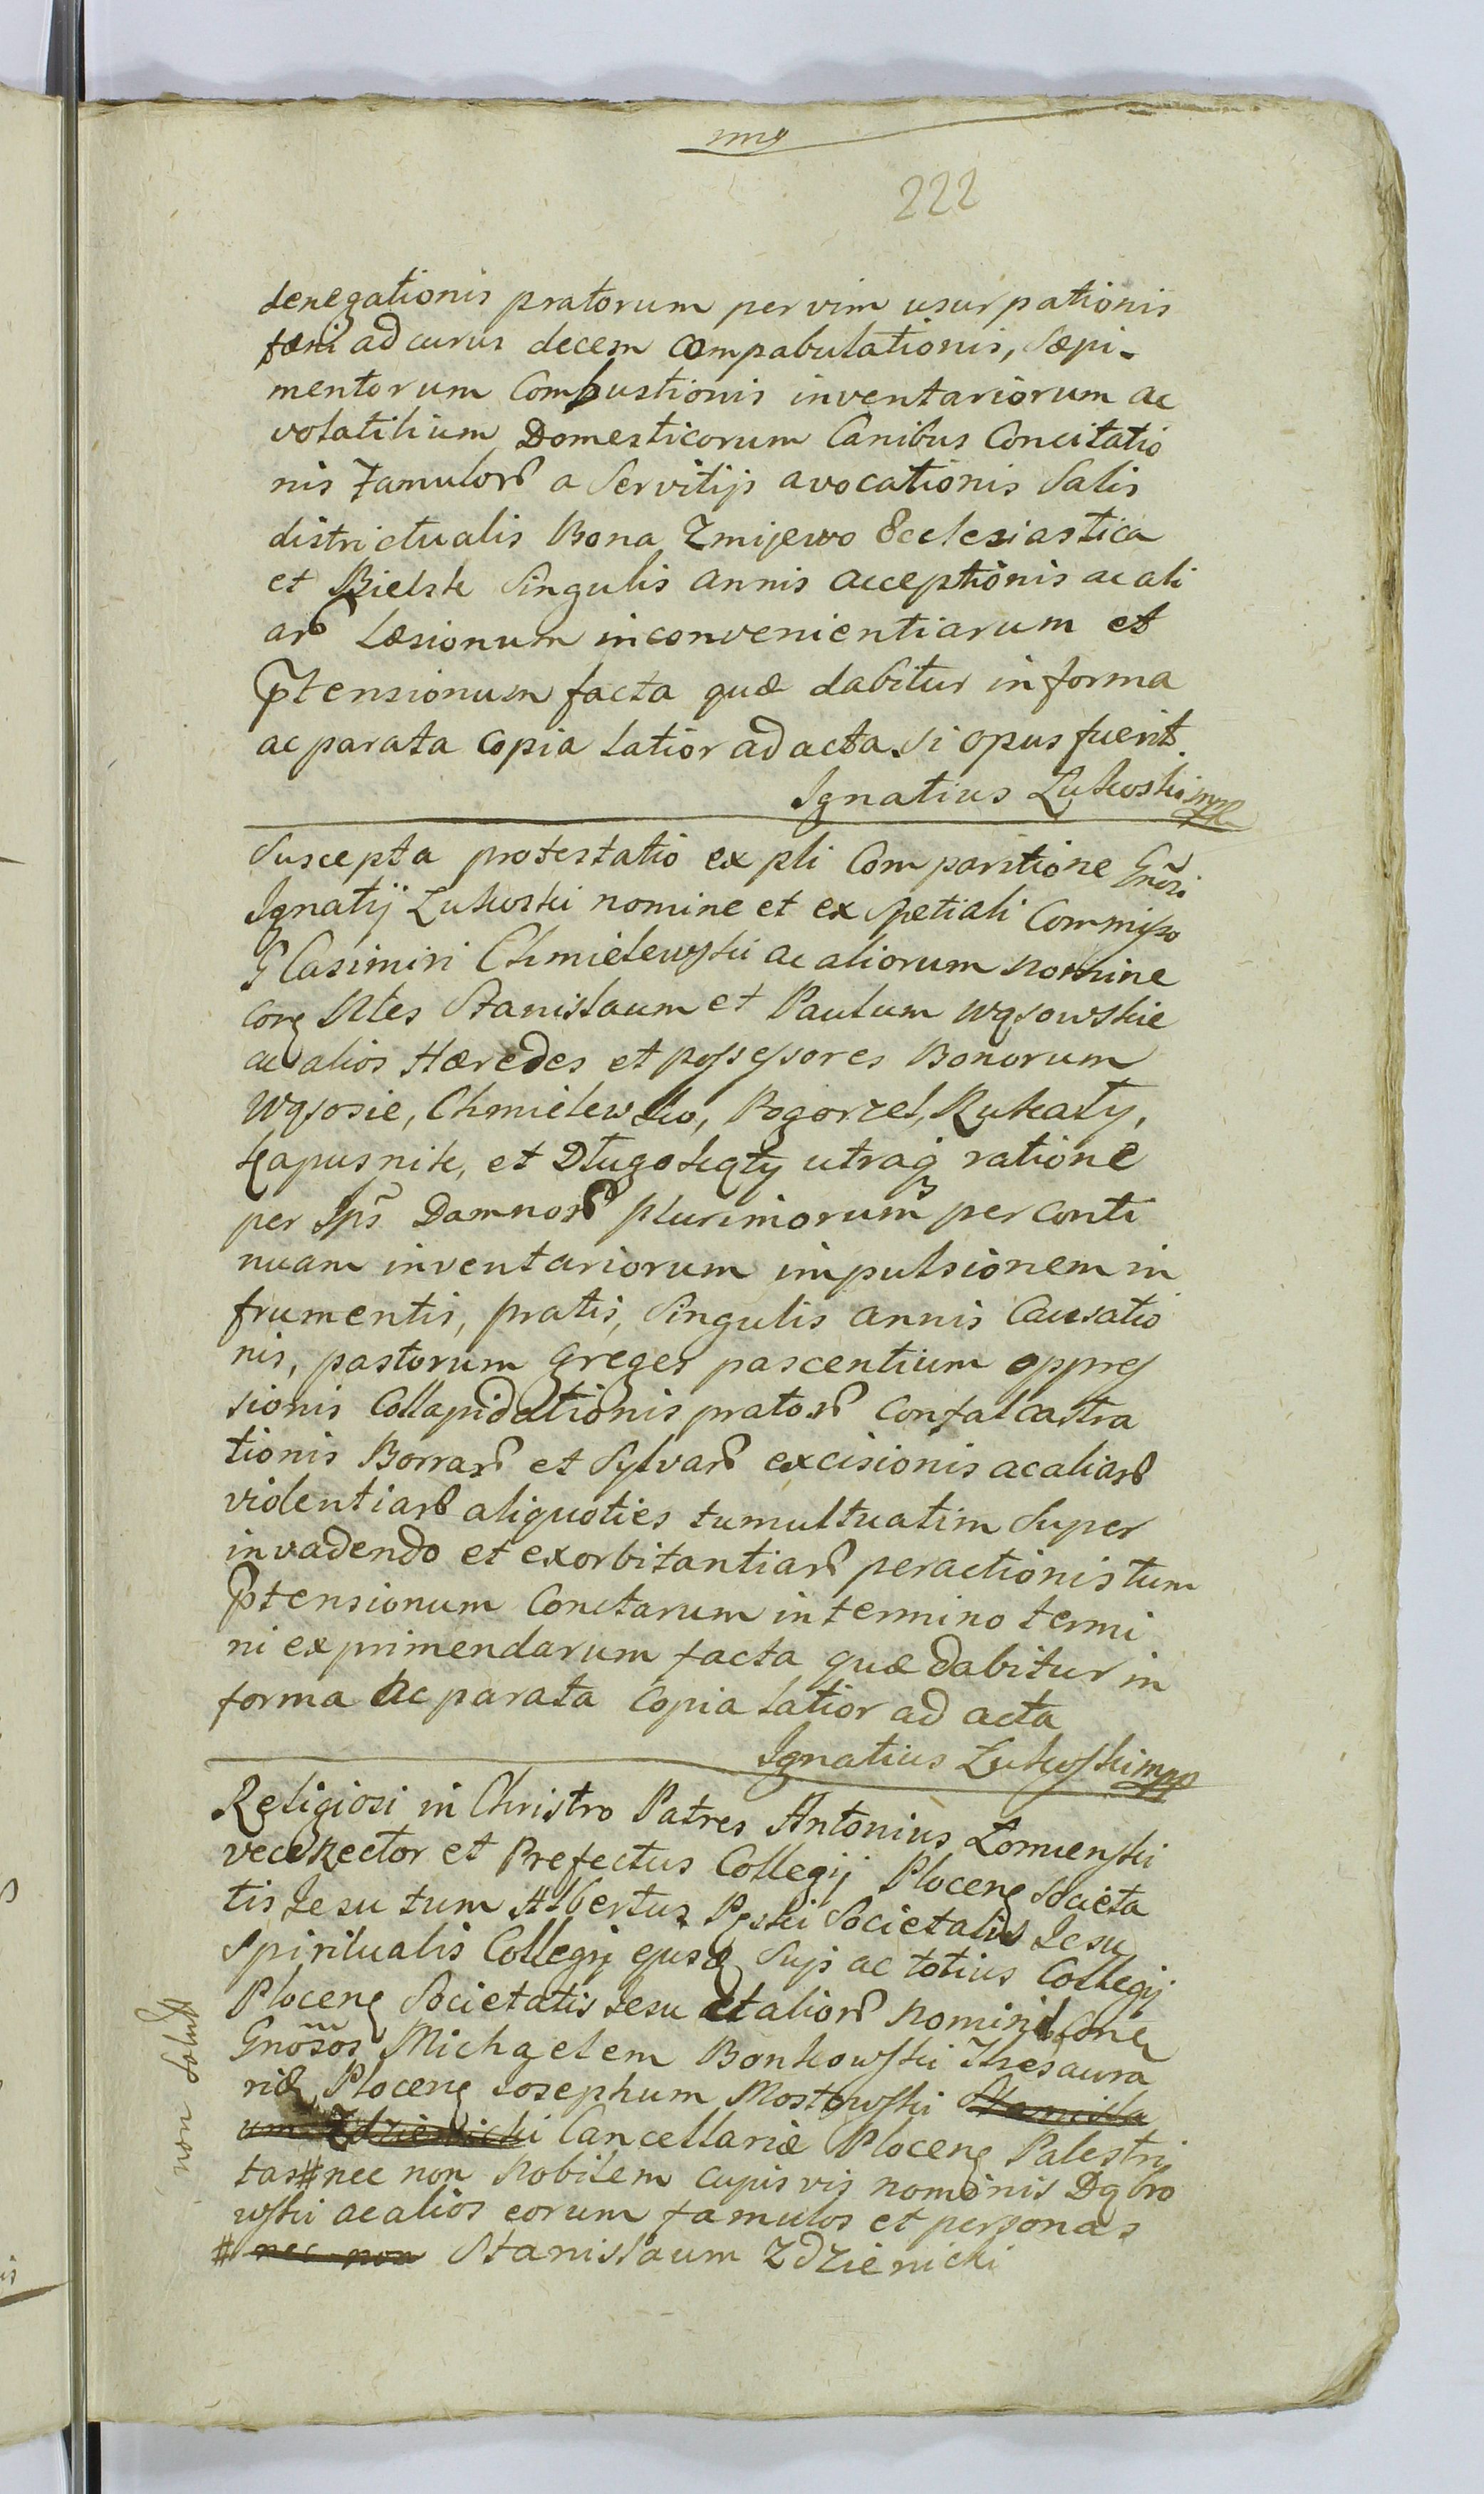 222
denegationis pratorum per vim usurpationis
fæni ad currus decem compabulationis, Sæpi-
mentorum Combustionis inventariorum ac
volatilium Domesticorum Canibus Concitatio
nis Famulorũ a Servitijs avocationis Salis
districtualis Bona Zmijewo Ecclesiastica
et Bielsk Singulis annis acceptionis ac ali
arũ Læsionum inconvenientiarum et
p̃tensionum facta quæ dabitur in forma
ac parata copia latior ad acta si opus fuerit.
Ignatius Żukoski mpp
Suscepta protestatio ex pli Comparitione Gñosi
Ignatij Żukoski nomine et ex Spetiali Commisso
G Casimiri Chmielewski ac aliorum nomine
Corꝫ Nles Stanislaum et Paulum Wąsowskie
ac alios Hæredes et possessores Bonorum
Wąsosie, Chmielewko, Pogorzel, Rukały,
Kapusnik, et Długołęki utraqꝫ ratione
per Ips̃ Damnorũ plurimorum per conti
nuam inventariorum impulsionem in
frumentis, pratis, Singulis annis Causatio
nis, pastorum Greges pascentium oppres
sionis Collapidationis pratorũ confalcastra
tionis Borrarũ et Sylvarũ excisionis ac aliarũ
violentiarũ aliquoties tumultuatim Super
invadendo et exorbitantiarũ peractionis tum
p̃tensionum Conctarum in termino termi
ni exprimendarum facta quæ dabitur in
forma ac parata Copia latior ad acta
Ignatius Żukoski mpp
Religiosi in Christro Patres Antonius Łomienski
vece Rector et Prefectus Collegij Plocenꝫ Societa
tis Jesu tum Albertus Pęski Societatis Jesu
Spiritualis Collegij ejusdꝫ Suis ac totius Collegij
Plocenꝫ Societatis Jesu et aliorũ nominibꝫ Conꝫ
Gnõsos Michaelem Bonkowski Thesaura
riæ Plocenꝫ Josephum Mostowski Stanisla
um Zdzienicki Cancellariæ Plocenꝫ Palestri
tas # nec non Nobilem cujusvis nominis Dąbro
wski ac alios eorum famulos et personas
# nec non Stanislaum Zdzienicki
non Solut